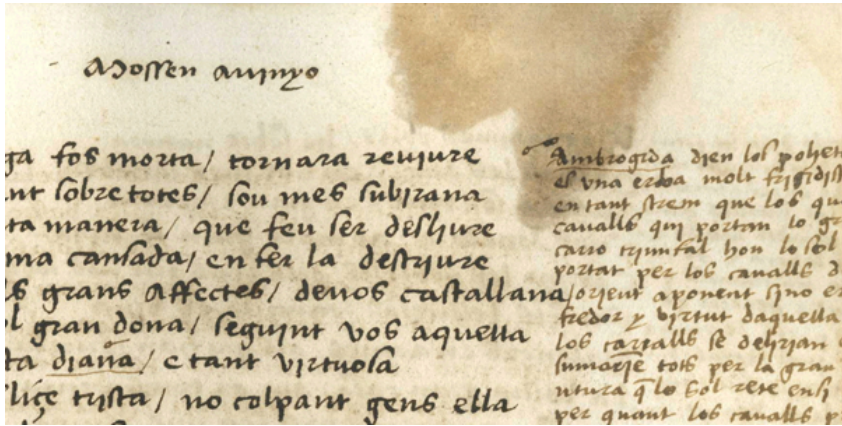 Mossen auinyo
ga fos morta / tornara reuiure
nt sobre totes / sou mes subirana
ta manera / que feu ser desliure
ma cansada / en fer la descriure
ls grans affectes / deuos castallana
l gran dona / seguint vos aquella
ta diana / e tant virtuosa
liçe trista / no colpant gens ella
Ambrogida dien los pohet
es vna erba molt frigidis
en tant strem que los qu
caualls qui portan lo gr
carro triunfal hon lo sol
portat per los caualls d
orient a ponent sino er
fredor y virtut daquella
los caualls se delirian
tots per la gran
ntura q̄ lo sol rete ensi
per quant los caualls p